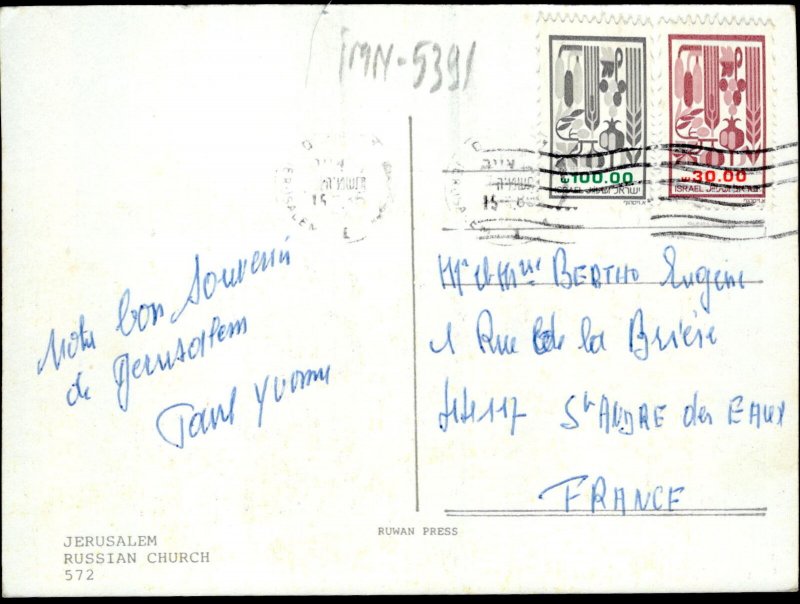 IMN-5391
JERUSALEM
15
JERUSALEM
15
100.00
ISRAEL اسرائيل ישראל
30.00
ISRAEL اسرائيل ישראל
Notre bon Souvenir
de Jerusalem
Paul Yvonne
Mr et Mme BERTHO Eugène
1 Rue de la Brière
44117 St ANDRE des EAUX
FRANCE
JERUSALEM
RUSSIAN CHURCH
572
RUWAN PRESS